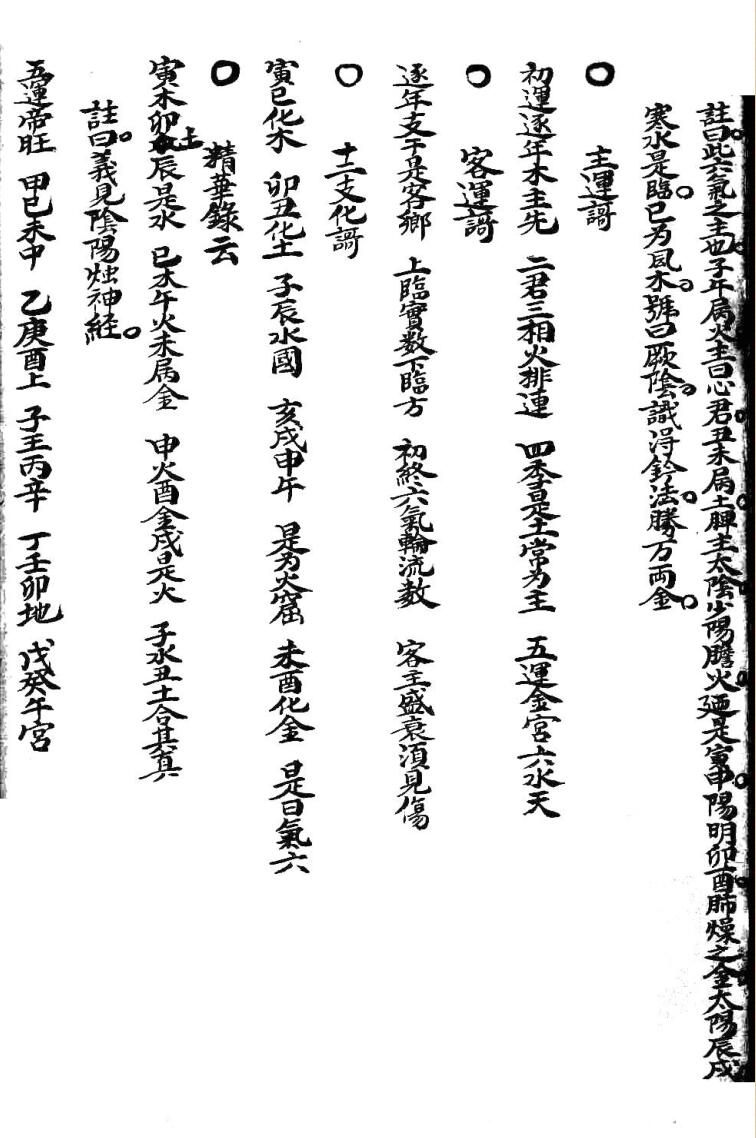 註曰此六氣之主也子午屬火主曰心君丑未屬土脾主太陰少陽膽火廼是寅申陽明卯酉肺燥之金太陽辰戌
寒水是臨巳為風木號曰厥陰識浔鈐法勝万兩金
○ 主運謌
初運逐年木主先 二君三相火排連 四季是土常为主 五運金宮六水天
○ 客運謌
逐年支干是客鄉 上臨實數下臨方 初終六氣輪流數 客主盛衰湏見傷
○ 十二支化謌
寅巳化木 卯丑化土 子辰水國 亥戌申午 是为火窟 未酉化金 是曰氣六
○ 精華錄云
寅木卯土辰是水 巳木午火未属金 申火酉金戌是火 子水丑土合其真
註曰義見陰陽烛神経
五運帝旺 甲巳未中 乙庚酉上 子王丙辛 丁壬卯地 戊癸午宮